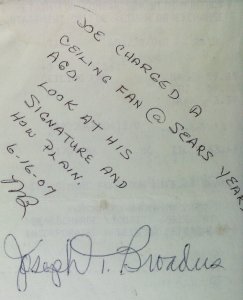 JOE CHARGED A
CEILING FAN @ SEARS YEARS
AGO.
LOOK AT HIS
SIGNATURE AND
HOW PLAIN.
6-16-07
Joseph T. Broadus